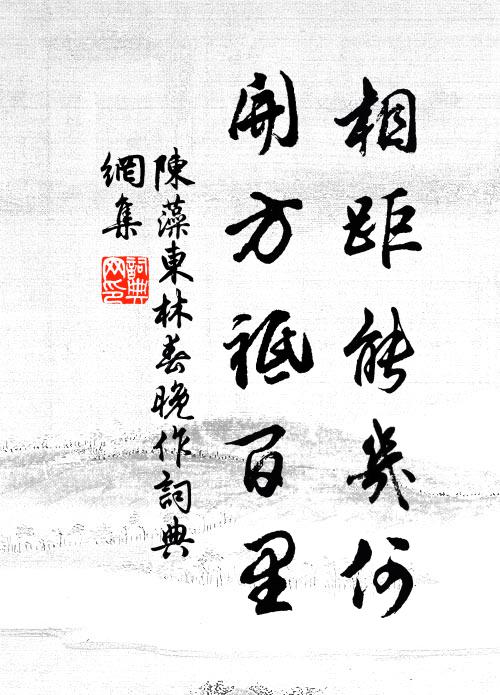 相距能幾何
開方祗百里
陳藻東林春晚作詞典
網集
詞典
网印